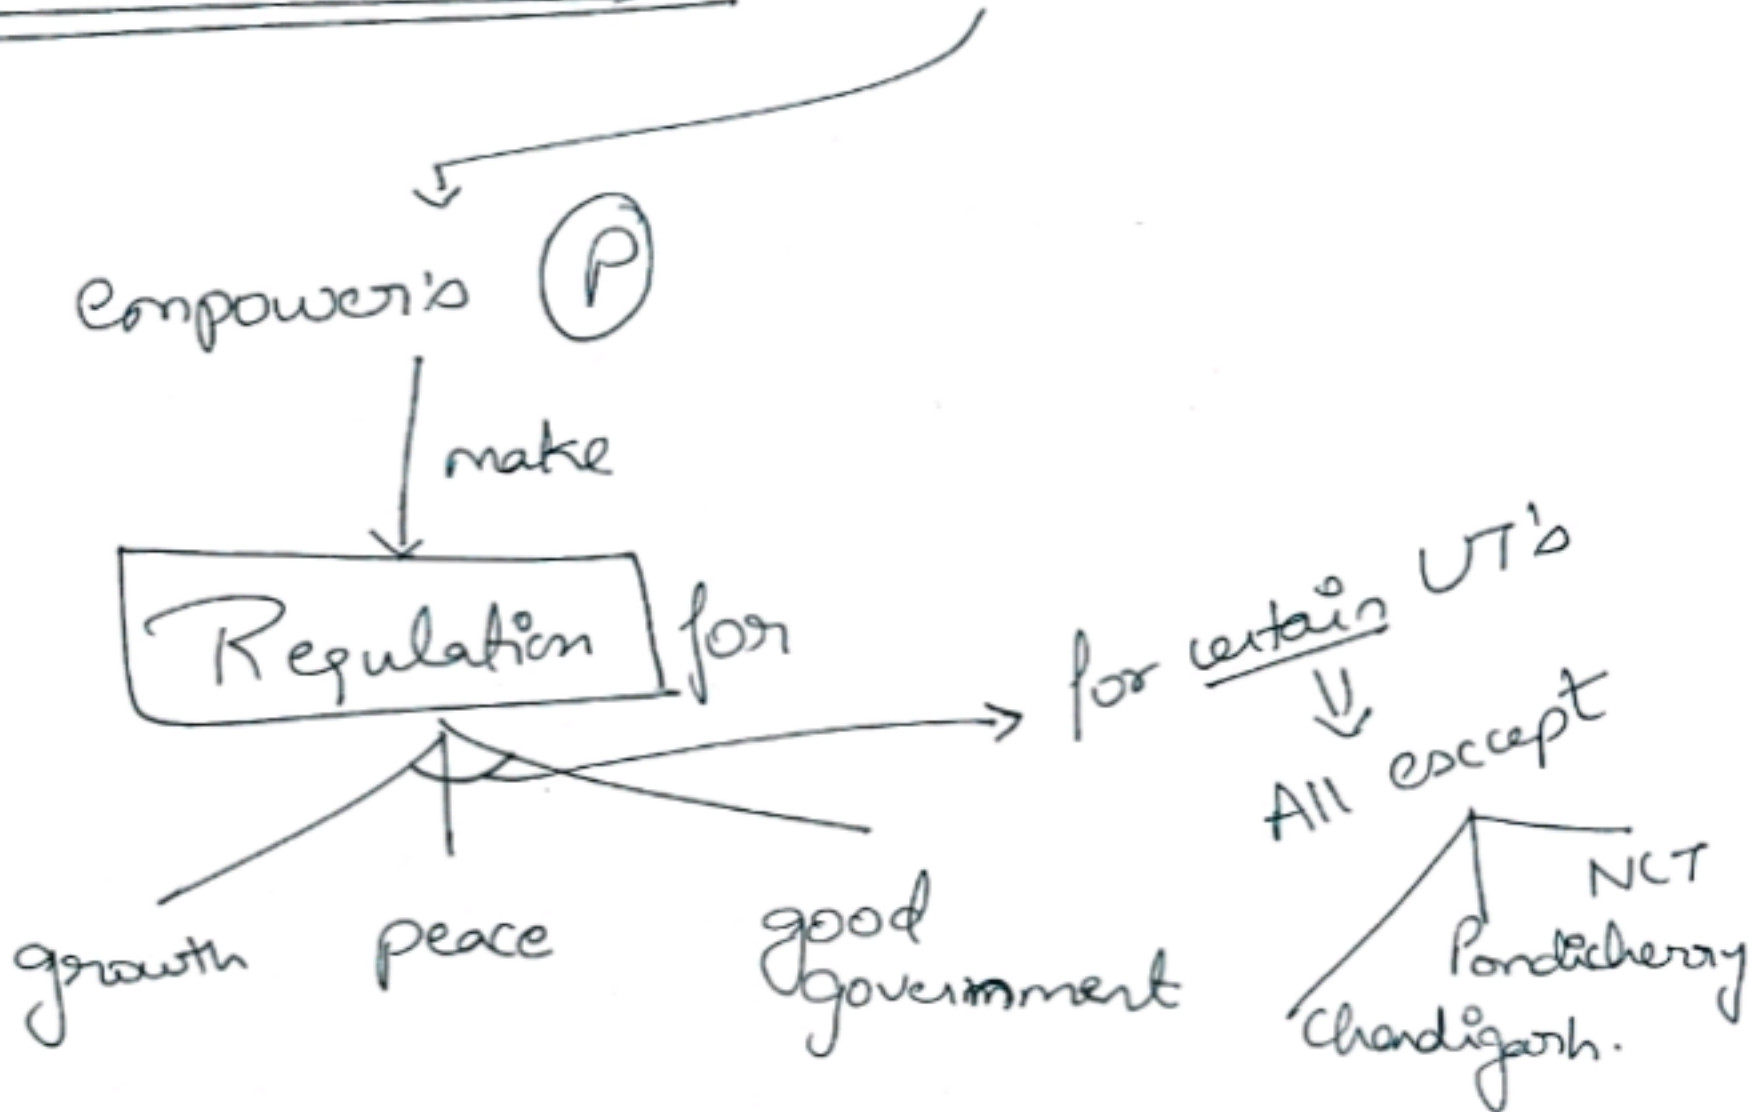 empower's P
make
Regulation for
for certain UT's
All except
growth
peace
good
government
NCT
Pondicherry
Chandigarh.